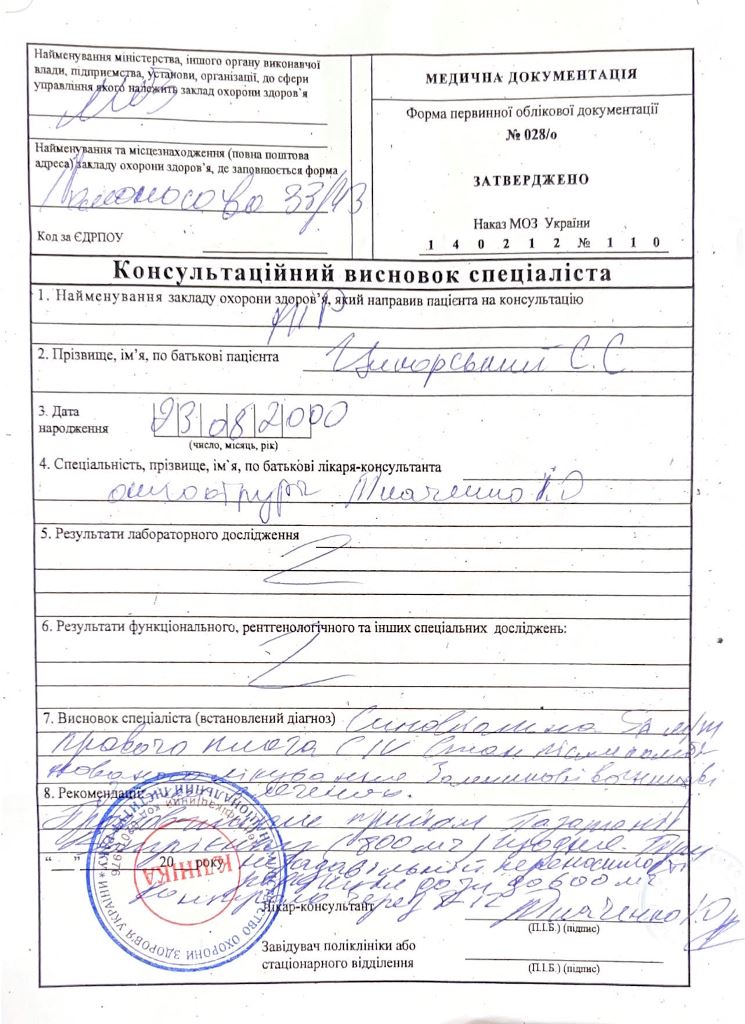 Найменування міністерства, іншого органу виконавчої
влади, підприємства, установи, організації, до сфери
управління якого належить заклад охорони здоров`я
МОЗ
Найменування та місцезнаходження (повна поштова
адреса) закладу охорони здоров'я, де заповнюється форма
Ломоносова 33/43
Код за ЄДРПОУ
МЕДИЧНА ДОКУМЕНТАЦІЯ
Форма первинної облікової документації
№ 028/о
ЗАТВЕРДЖЕНО
Наказ МОЗ України
1 4 0 2 1 2 № 1 1 0
Консультаційний висновок спеціаліста
1. Найменування закладу охорони здоров'я, який направив пацієнта на консультацію
2. Прізвище, ім'я, по батькові пацієнта С.С.
3. Дата
народження
23 08 2000
(число, місяць, рік)
4. Спеціальність, прізвище, ім`я, по батькові лікаря-консультанта
Ткаченко
5. Результати лабораторного дослідження
6. Результати функціонального, рентгенологічного та інших спеціальних досліджень:
7. Висновок спеціаліста (встановлений діагноз) Синовіальна м/т
правого плеча Стан
лікування Залишкові
8. Рекомендації
прийом
800 мг
“ ” 20 року переносимості
дози до 600 мг
через
КЛІНІКА
Лікар-консультант Ткаченко
(П.І.Б.) (підпис)
Завідувач поліклініки або
стаціонарного відділення
(П.І.Б.) (підпис)